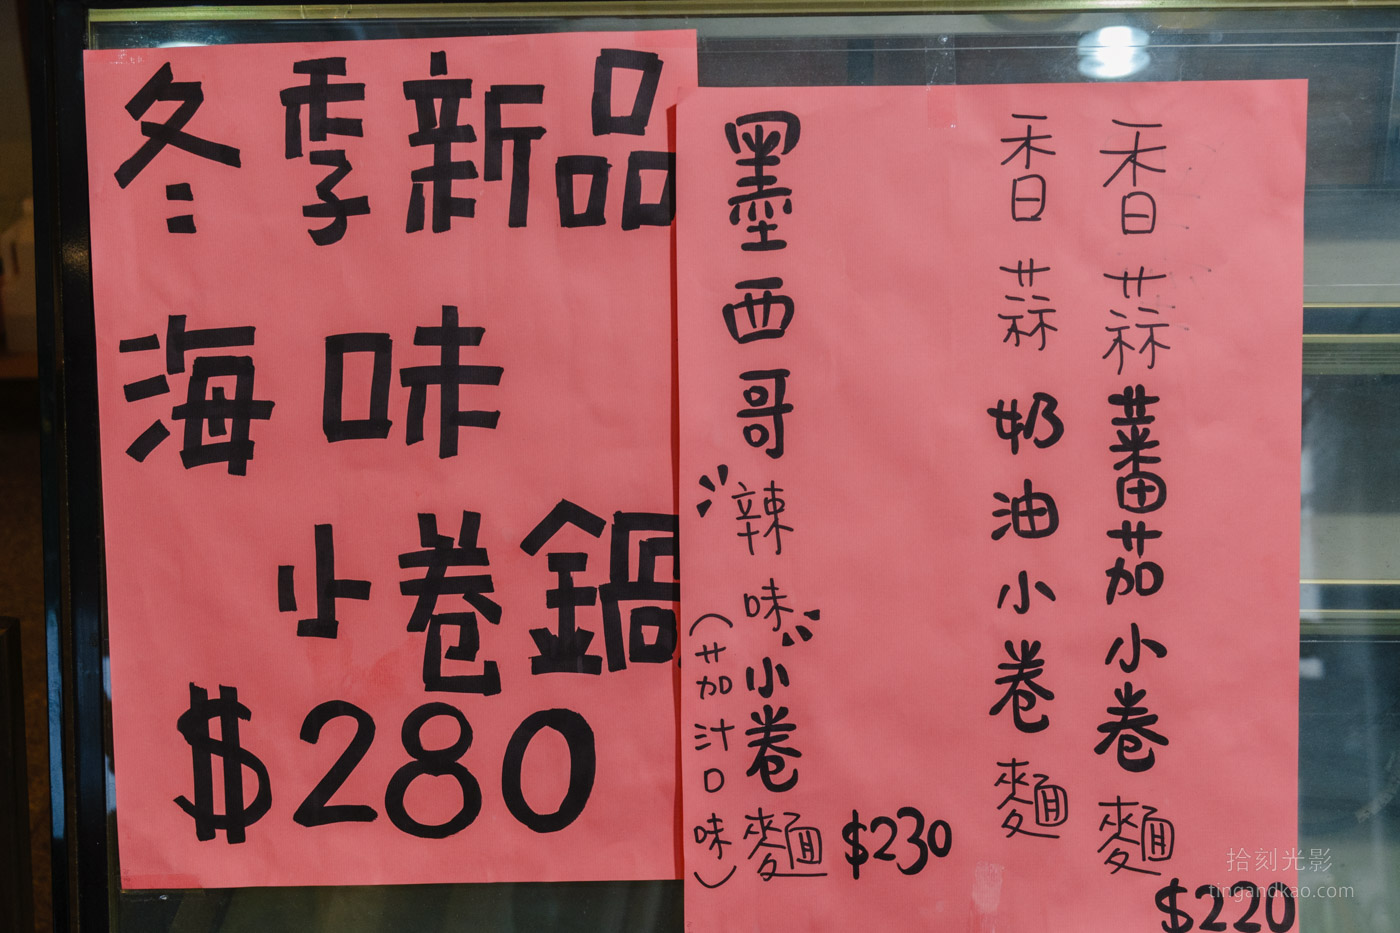 冬季新品
海味
小卷鍋
$280
香蒜蕃茄小卷麵
$220
香蒜奶油小卷麵
墨西哥辣味小卷麵
$230
(茄汁口味)
拾刻光影
tingandkao.com